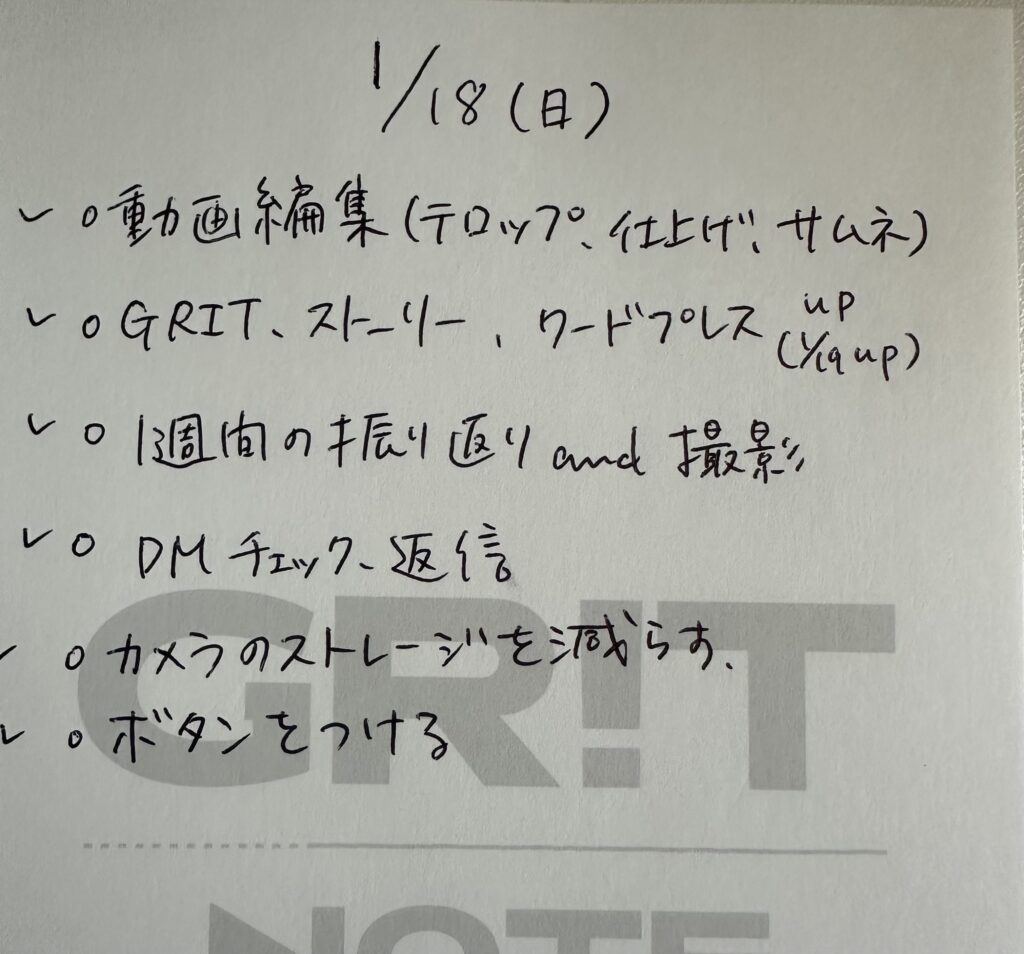 1/18(日)
✓ ○ 動画編集(テロップ、仕上げ、サムネ)
✓ ○ GRIT、ストーリー、ワードプレス up (1/19 up)
✓ ○ 1週間の振り返り and 撮影
✓ ○ DMチェック、返信
✓ ○ カメラのストレージを減らす、
✓ ○ ボタンをつける
GR!T
NOTE